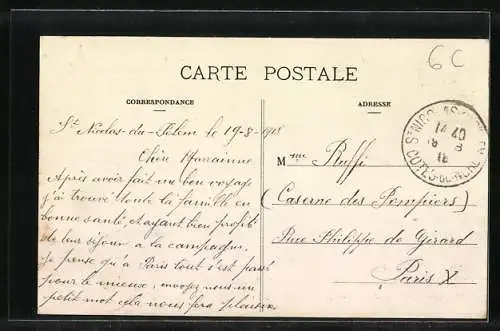 6C
CARTE POSTALE
CORRESPONDANCE
ADRESSE
St Nicolas-du-Pélem le 19-8-1918
Chère Marrainne
Après avoir fait un bon voyage
j'ai trouvé toute la famille en
bonne santé, ayant bien profité
de leur séjour a la campagne,
je pense qu'a Paris tout s'est passé
pour le mieux, envoyez-nous un
petit mot cela nous fera plaisir.
Mme Ruffi
(Caserne des Pompiers)
Rue Philippe de Girard
Paris X
14 40
19 8
18
CÔTES-DU-NORD